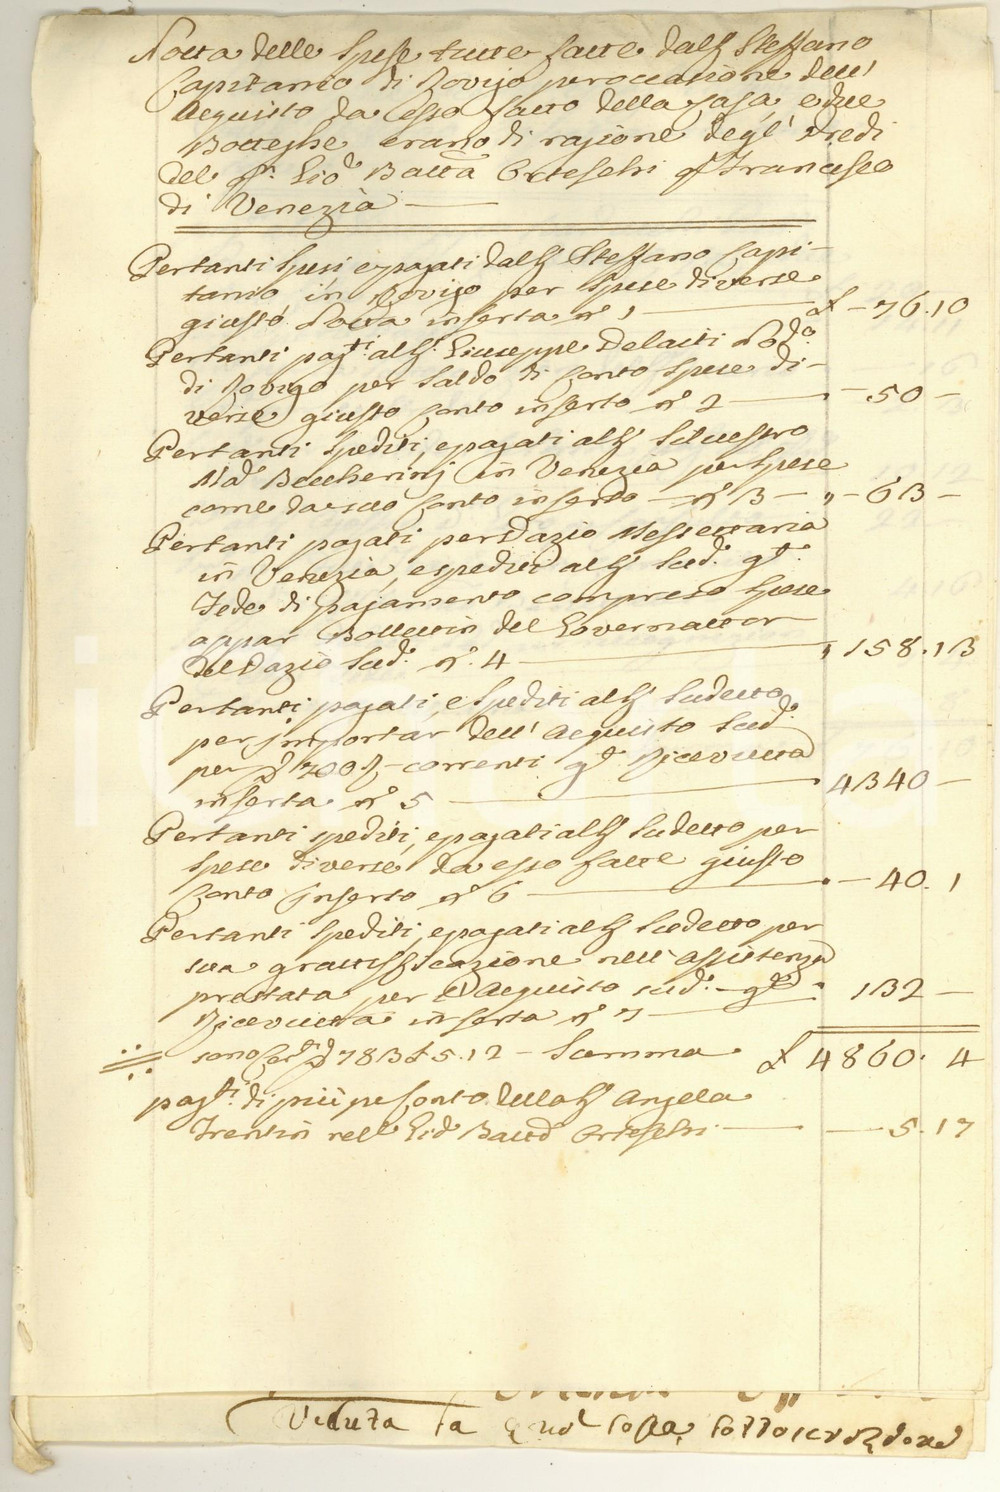 Notta delle Spese tutte fatte dal Sig.r Steffano
Capitanio di Rovigo per occasione dell'
Acquisto da esso fatto della Casa, e due
Botteghe erano di ragione degl' Eredi
del q.m Gio: Batta Orteschi q.m Francesco
di Venezia
Per tanti spesi, e pagati dal Sig.r Steffano Capi-
tanio in Rovigo per spese diverse
giusto Notta inserta n.o 1 £ - 76.10
Per tanti pag.ti al Sig.r Giuseppe Delaiti
di Rovigo per Saldo di Conto Spese di-
verse giusto Conto inserto n.o 2 - 50 -
Per tanti spediti, e pagati al Sig.r Silvestro
M.a Boccherinj in Venezia per Spese
come da suo Conto inserto n.o 3 - 63 -
Per tanti pagati per Dazio Messettaria
in Venezia, e spediti al Sig.r Sud.o g.to
Fede di Pagamento compreso Spese
appar Bollettin del Governattor
del Dazio Sud.o n.o 4 158.13
Per tanti pagati, e Spediti al Sig.r Sudetto
per jmportar dell' Acquisto Sud.o
per 700 correnti g.to Ricevuta
inserta n.o 5 4340 -
Per tanti spediti, e pagati al Sig.r Sudetto per
spese diverse da esso fatte giusto
Conto jnserto n.o 6 - 40. 1
Per tanti spediti, e pagati al Sig.r Sudetto per
sua grattifficazione nell' assistenza
prestata per l'Acquisto sud.o g.to
Ricevuta inserta n.o 7 132 -
sono 783 £ 5.12 - Summa £ 4860. 4
pag.ti di più per Conto della Sig.ra Angela
Trentin rell. Gio Batta Orteschi - 5.17
Veduta la